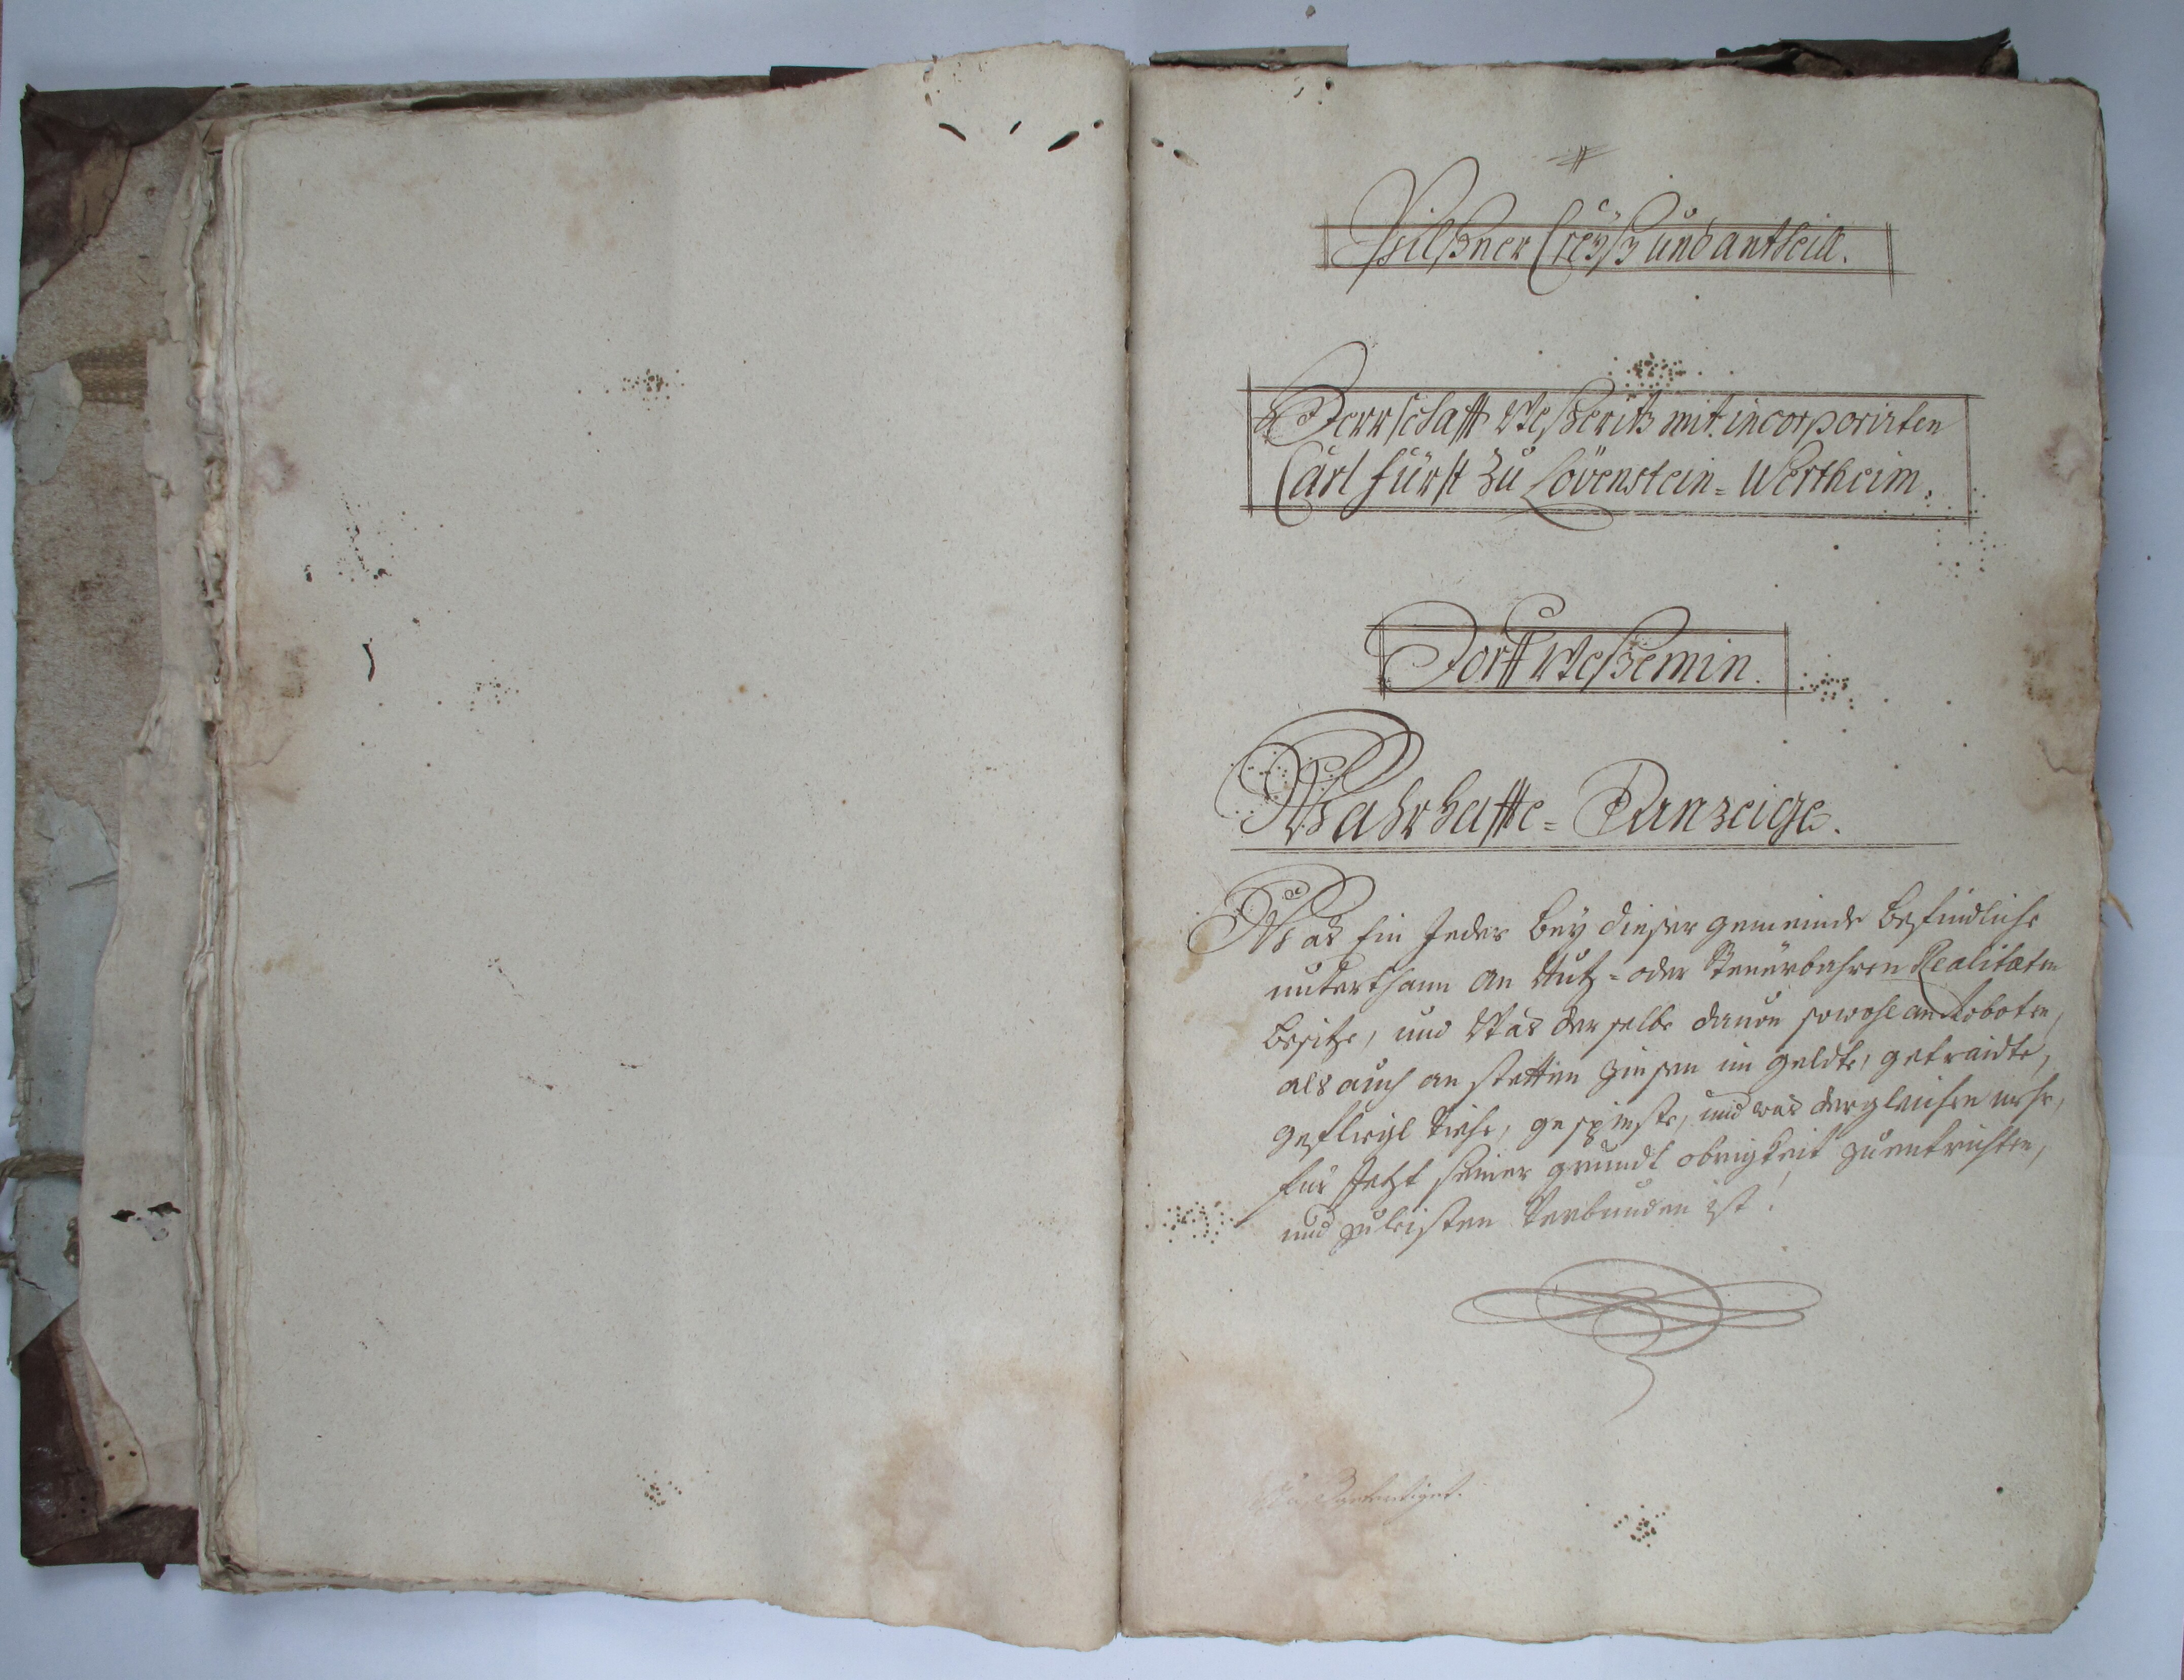 Pilßner Creÿß und antheill.
Herrschafft Weßeritz mit incorporirten
Carl Fürst zu Lövenstein = Wertheim.
Dorff Weßemin.
Wahrhaffte = Anzeige.
Was Ein Jeder beÿ dieser gemeinde befindliche
unterthann an Nutz = oder Steuerbahren Realitæten
besitze, und Was der selbe davon sowohl an Roboten,
als auch an stetten Zinsen im geldte, getraidte,
gefliegl Viehe, gespinste, und was dergleichen mehr,
für Jetzt seiner grundt obrigkeit zuentrichten,
und zuleisten Verbunden ist.